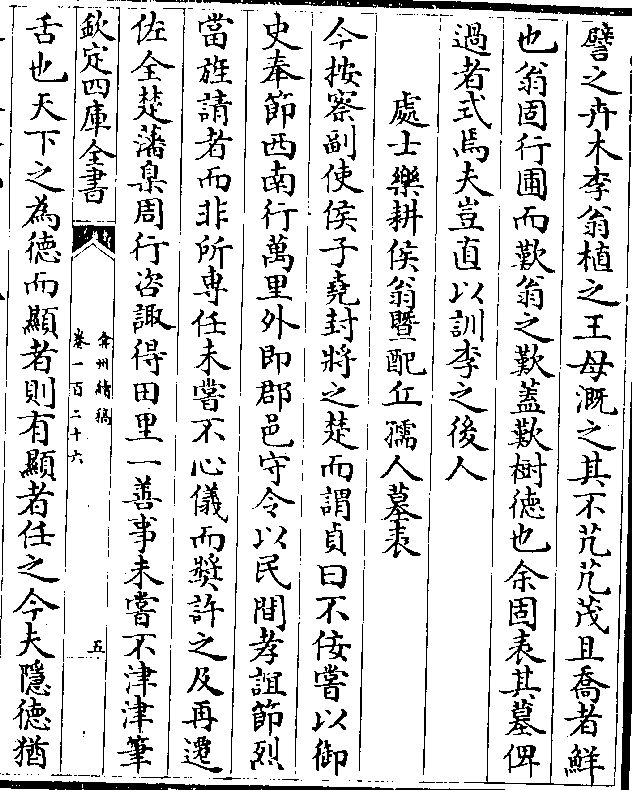 譬之卉木李翁植之王母溉之其不芃芃茂且喬者鮮
也翁固行圃而歎翁之歎蓋歎樹德也余固表其墓俾
過者式焉夫豈直以訓李之後人
處士樂耕侯翁暨配丘孺人墓表
今按察副使侯子堯封將之楚而謂貞曰不佞嘗以御
史奉節西南行萬里外即郡邑守令以民間孝誼節烈
當旌請者而非所專任未嘗不心儀而獎許之及再遷
佐全楚藩臬周行咨諏得田里一善事未嘗不津津筆
欽定四庫全書
弇州續稿
卷一百二十六
五
舌也天下之為德而顯者則有顯者任之今夫隱德猶